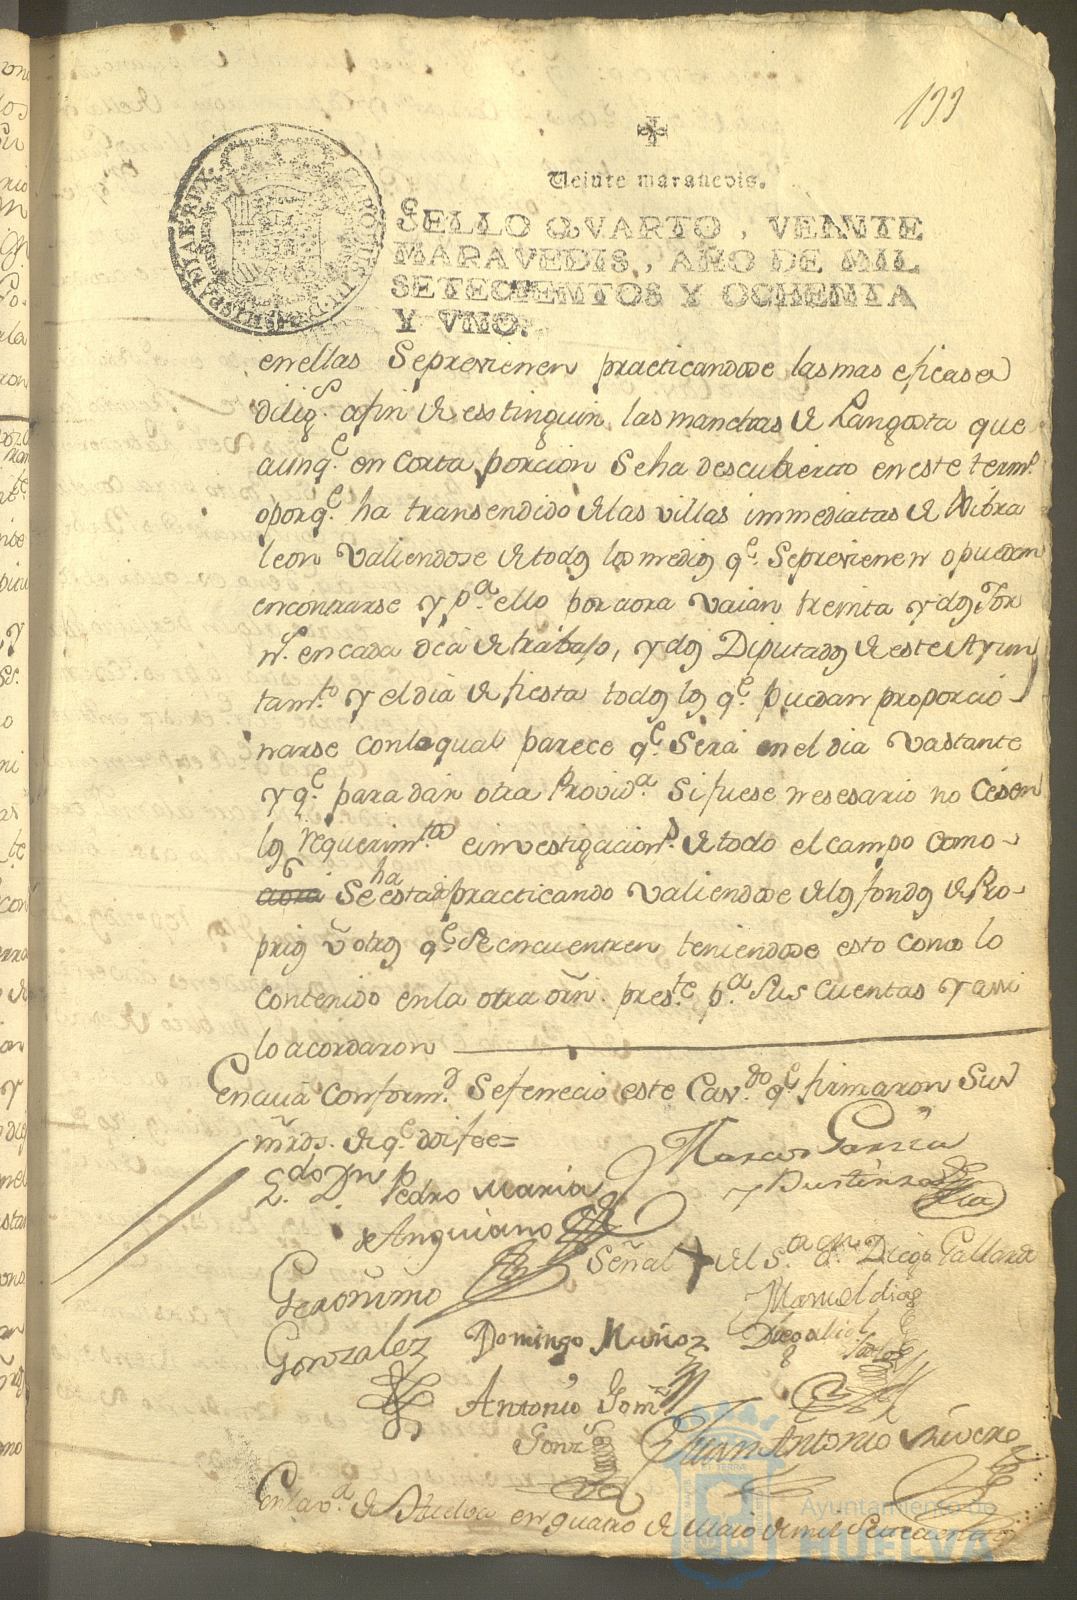 133
Veinte maravedis.
SELLO QVARTO, VEINTE
MARAVEDIS, AÑO DE MIL
SETECIENTOS Y OCHENTA
Y VNO.
en ellas Seprevienen practicandose las mas eficases
dilig.s afin de esstinguir las manchas de Langosta que
aunq.e en corta porcion Seha descubierto en este term.o
o porq.e ha transendido de las villas immediatas de Nibra
leon valiendose de todos los medios q.e Seprevienen o puedan
encontrarse y p.a ello por aora vaian treinta y dos Jor
n.s en cada dia de trabajo, y dos Diputados de este Ayun
tam.to y el dia de fiesta todos los q.e puedan proporcio
narse con lo qual parece q.e Será en el dia vastante
y q.e para dar otra Provid.a Si fuese nesesario no Cesen
los requerim.tos e investigacion.s de todo el campo como
aora Se ha estado practicando valiendose de los fondos de Pro-
prios ú otros q.e Se encuentren teniendose esto como lo
contenido en la otra orn. pres.te p.a Sus Cuentas y assi
lo acordaron
En cuia Conform.d Sefenecio este Cav.do q.e firmaron Sus
mrds. de q.e doi fee=
L.do Dn Pedro Maria
de Anguiano
Marcos Garcia
y Bustinza
Señal + del S.or Dn. Diego Gallardo
Geronimo
Gonzalez
Manuel dias
Domingo Muñoz
Diego
Antonio Gom.z
Gonz.s
Juan Antonio
En la v.a de Huelva en quatro de Maio de mil Setecientos
Ayuntamiento de
HUELVA